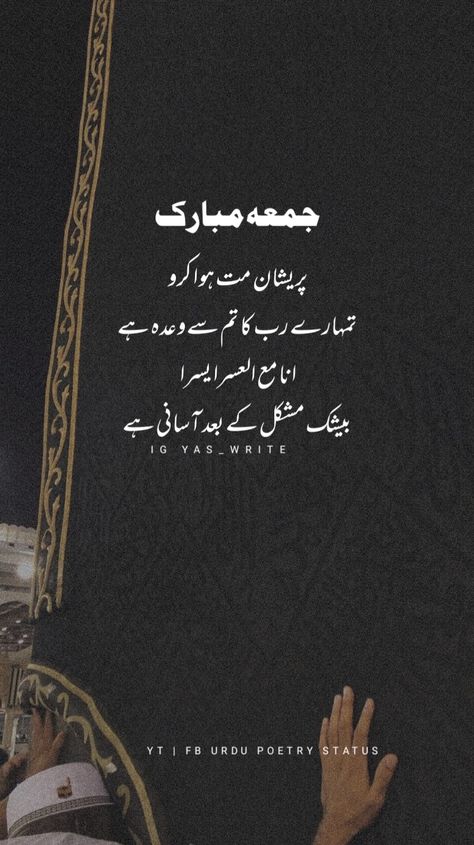 جمعہ مبارک
پریشان مت ہوا کرو
تمہارے رب کا تم سے وعدہ ہے
انا مع العسر ایسرا
بیشک مشکل کے بعد آسانی ہے
IG YAS_WRITE
YT | FB URDU POETRY STATUS